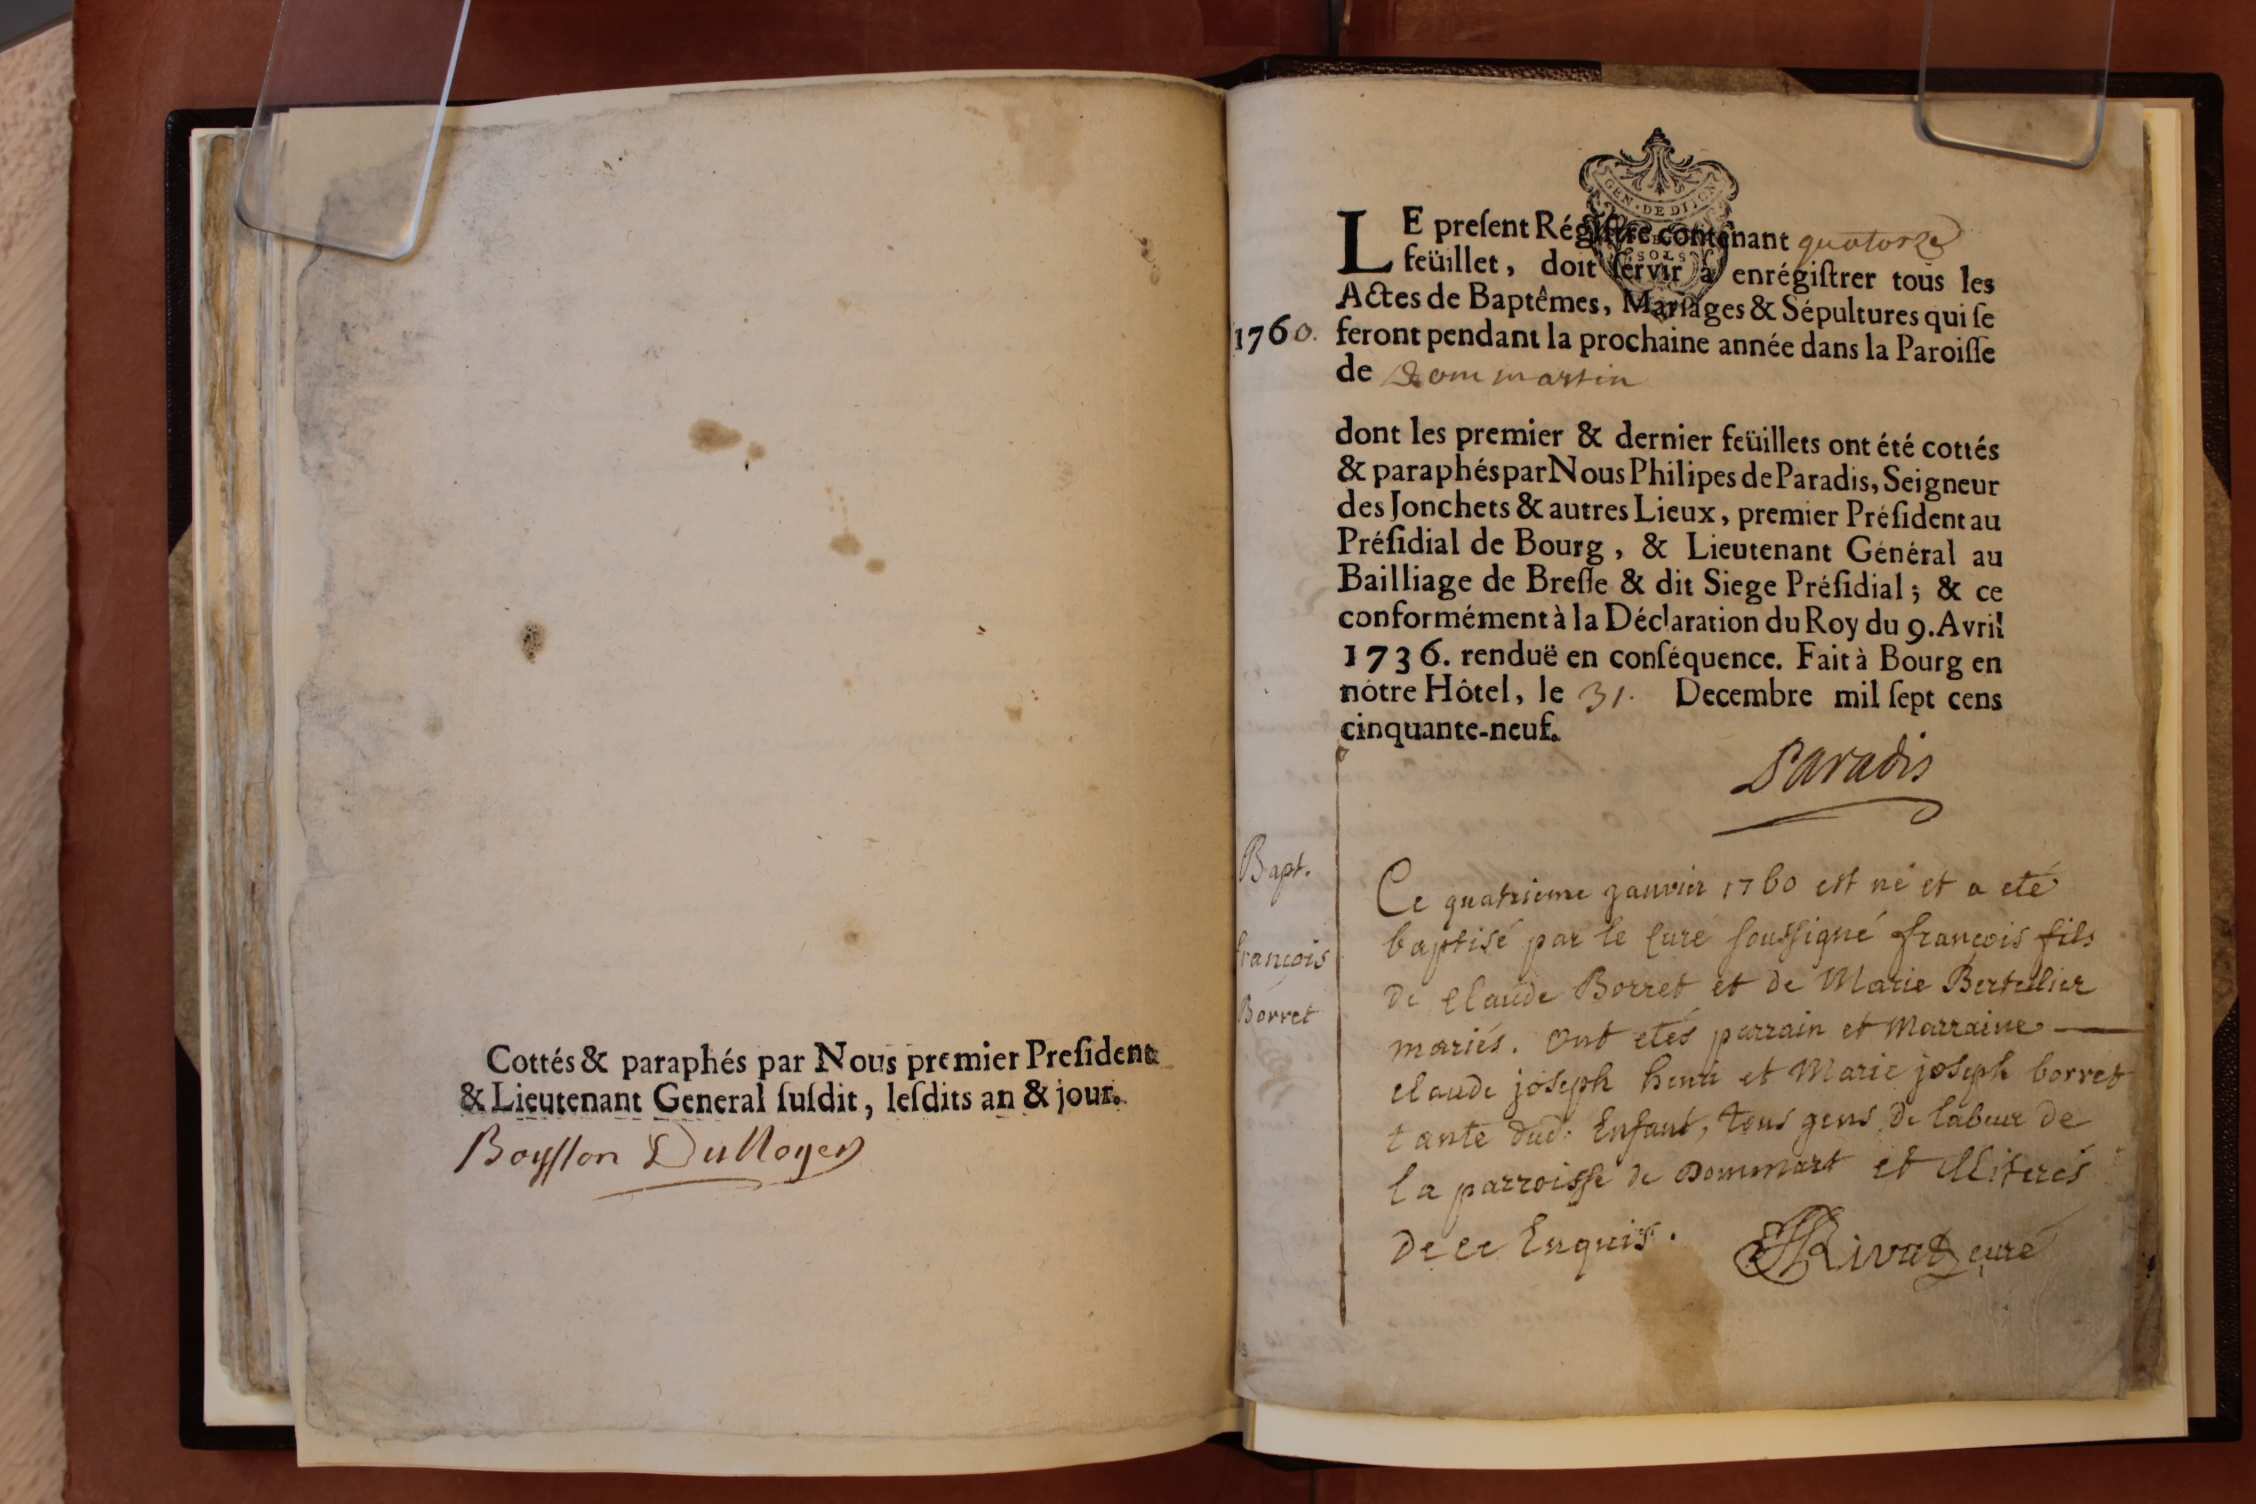 Cottés & paraphés par Nous premier Preſident
& Lieutenant General ſuſdit, leſdits an & jour.
Boysson DuNoyer
GEN · DE DIJON
SOLS
LE preſent Régiſtre contenant quatorze
feüillet, doit ſervir à enrégiſtrer tous les
Actes de Baptêmes, Mariages & Sépultures qui ſe
1760. feront pendant la prochaine année dans la Paroiſſe
de Dommartin
dont les premier & dernier feüillets ont été cottés
& paraphés par Nous Philipes de Paradis, Seigneur
des Jonchets & autres Lieux, premier Préſident au
Préſidial de Bourg, & Lieutenant Général au
Bailliage de Breſſe & dit Siege Préſidial; & ce
conformément à la Déclaration du Roy du 9. Avril
1736. renduë en conſéquence. Fait à Bourg en
nôtre Hôtel, le 31. Decembre mil ſept cens
cinquante-neuf.
Paradis
Bapt.
françois
Borret
Ce quatrieme janvier 1760 est né et a eté
baptisé par le Curé soussigné françois fils
de Claude Borret et de Marie Bertillier
mariés. Ont etés parrain et Marraine
claude joseph henri et Marie joseph borret
tante dud. Enfant, tous gens de labeur de
la parroisse de Dommart et illiterés
de ce Enquis. Rivat curé